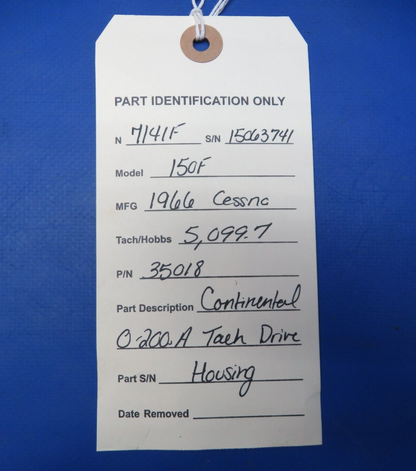 PART IDENTIFICATION ONLY
N 7141F S/N 15063741
Model 150F
MFG 1966 Cessna
Tach/Hobbs 5,099.7
P/N 35018
Part Description Continental
O-200.A Tach Drive
Part S/N Housing
Date Removed